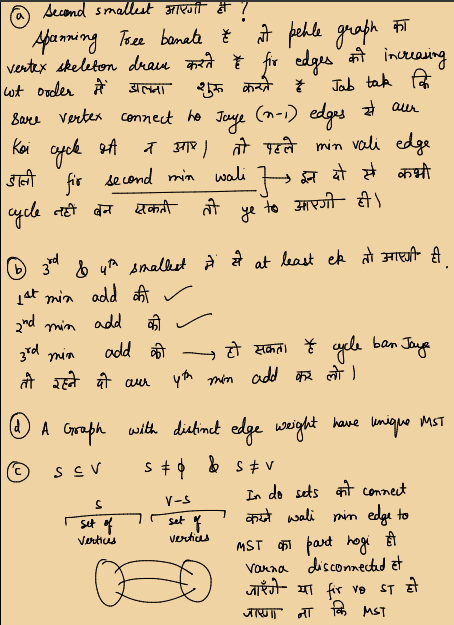 ⓐ Second smallest आएगी ही ?
Spanning Tree banate है तो pehle graph का
vertex skeleton draw करते है fir edges को increasing
wt order में डालना शुरू करते है Jab तक कि
Sare vertex connect ho Jaye (n-1) edges से aur
Koi cycle भी न आए। तो पहले min vali edge
डाली fir second min wali → इन दो से कभी
cycle नही बन सकती तो ye to आएगी ही।
ⓑ 3rd & 4th smallest में से at least ek तो आएगी ही.
1st min add की ✓
2nd min add की ✓
3rd min add की → हो सकता है cycle ban Jaye
तो रहने दो aur 4th min add कर लो।
ⓓ A Graph with distinct edge weight have unique MST
ⓒ S ⊆ V S ≠ ϕ & S ≠ V
S V-S
set of vertices set of vertices
In do sets को connect
करने wali min edge to
MST का part hogi ही
Varna disconnected हो
जाएँगे या fir vo ST हो
जाएगा ना कि MST